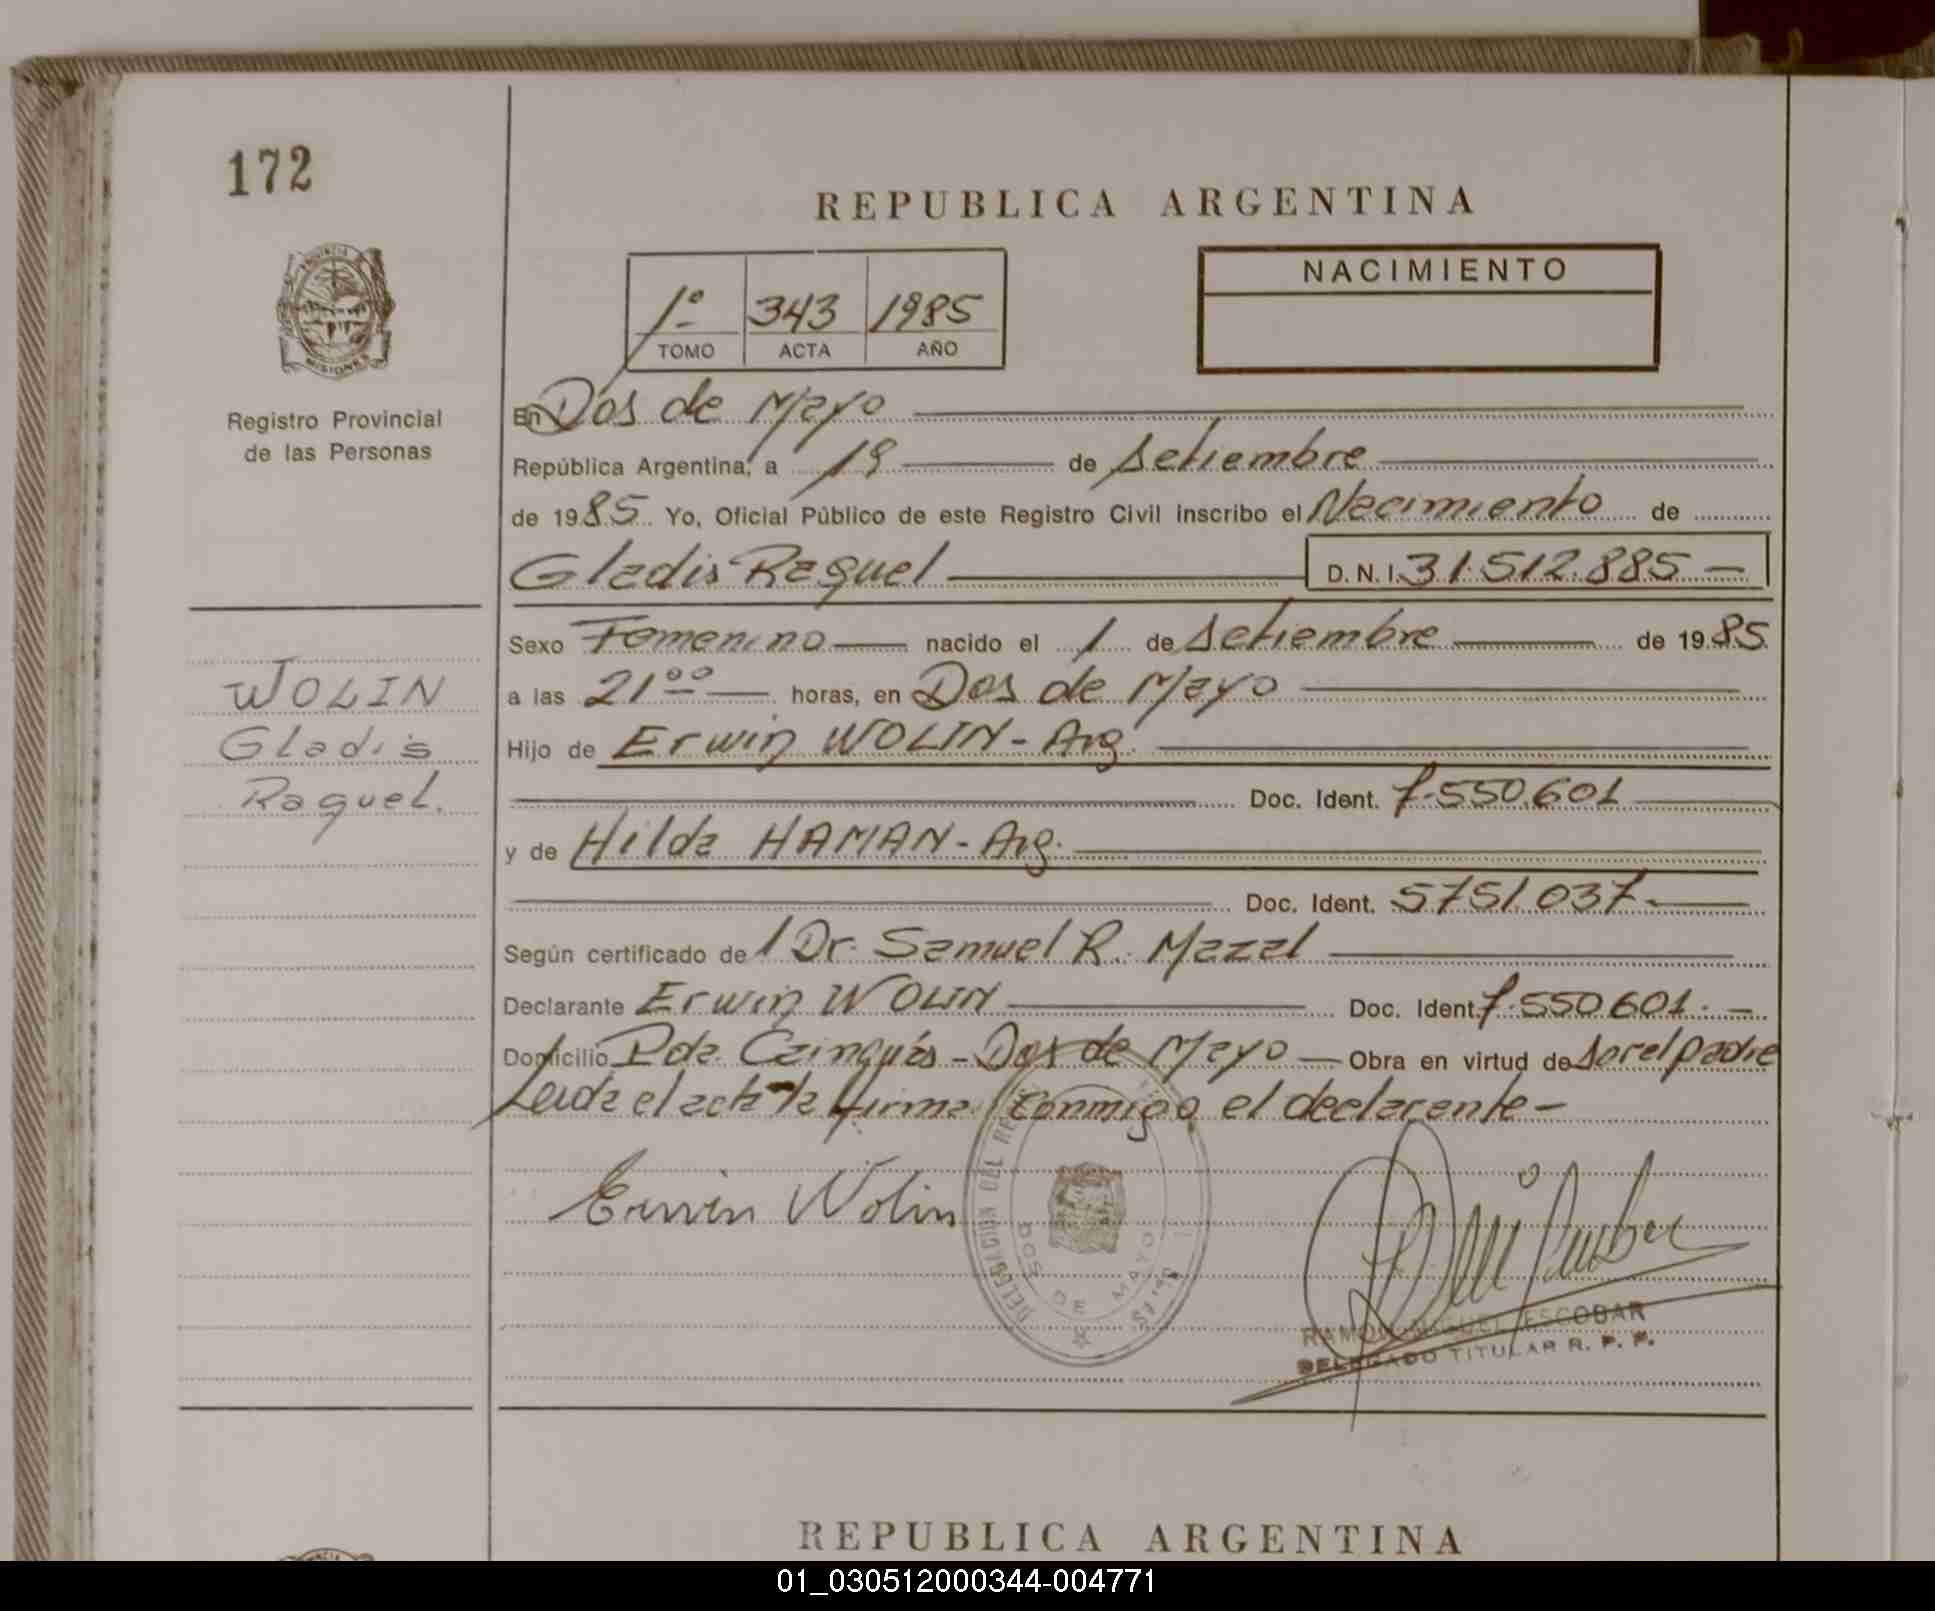 172
REPUBLICA ARGENTINA
1º 343 1985
TOMO ACTA AÑO
NACIMIENTO
MISIONES
Registro Provincial
de las Personas
En Dos de Mayo
República Argentina, a 19 de Setiembre
de 1985 Yo, Oficial Público de este Registro Civil inscribo el Nacimiento de
Gladis Raquel D. N. I. 31.512.885
Sexo Femenino nacido el 1 de Setiembre de 1985
a las 21⁰⁰ horas, en Dos de Mayo
Hijo de Erwin WOLIN - Arg.
Doc. Ident. 7.550.601
y de Hilda HAMAN - Arg.
Doc. Ident. 5751.037
Según certificado del Dr. Samuel R. Mazal
Declarante Erwin WOLIN Doc. Ident. 7.550601.
Domicilio Pda. Cainguás - Dos de Mayo Obra en virtud de ser el padre
Leida el acta la firma conmigo el declarante -
WOLIN
Gladis
Raquel.
Erwin Wolin
DELEGACION DEL
DOS DE MAYO
RAMON MIGUEL ESCOBAR
DELEGADO TITULAR R. P. P.
REPUBLICA ARGENTINA
01_030512000344-004771